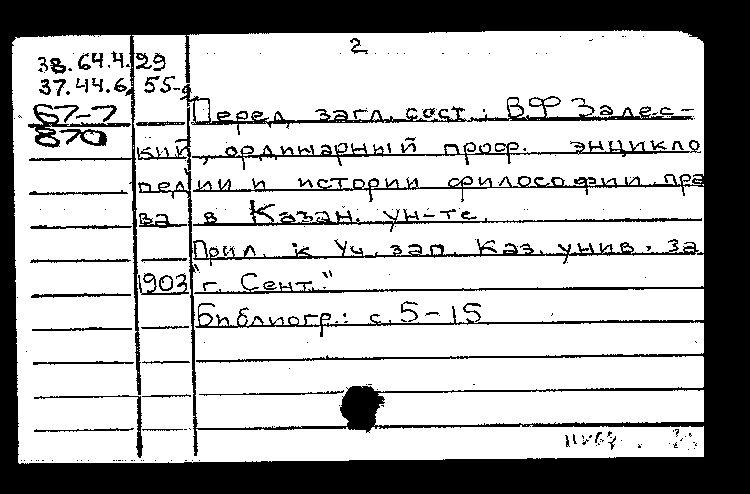 2
38.64.4.29
37.44.6. 55-9
67-7
870
Перед загл. сост.: В.Ф Залес-
кий, ординарный проф. энцикло
педии и истории философии пра
ва в Казан. ун-те.
Прил. к Уч. зап. Каз. унив. за
1903 г. Сент."
Библиогр.: с. 5-15